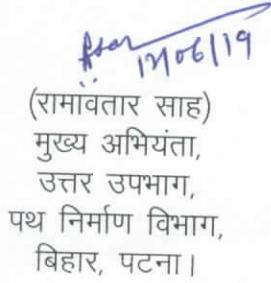 12/06/19
(रामावतार साह)
मुख्य अभियंता,
उत्तर उपभाग,
पथ निर्माण विभाग,
बिहार, पटना।